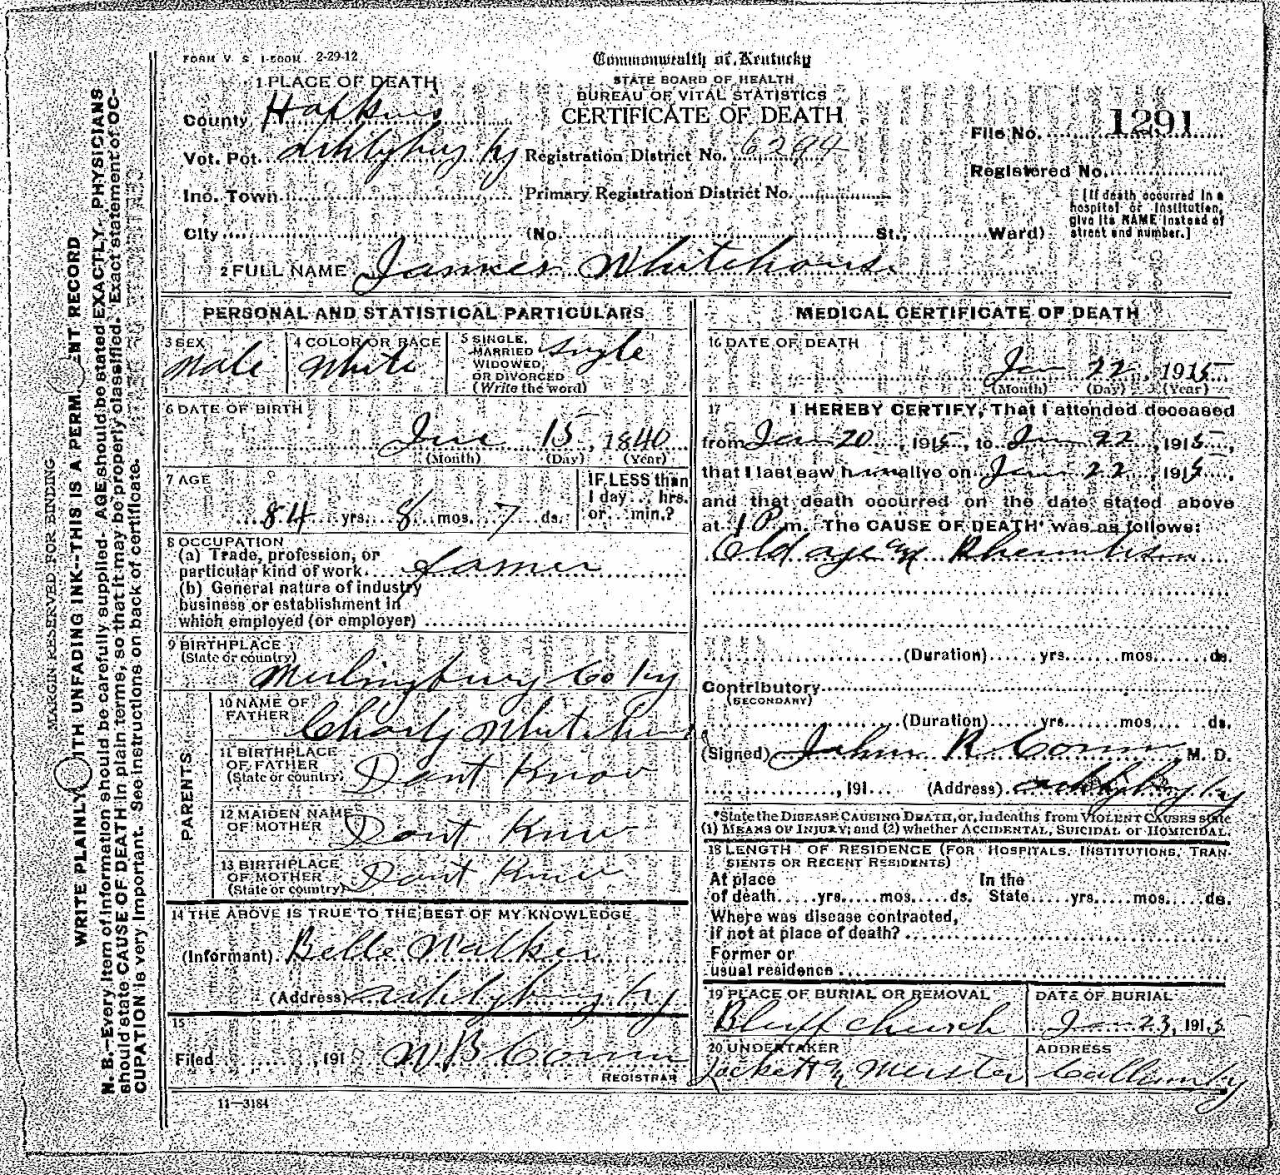 FORM V. S. 1-500M. 2-29-12
Commonwealth of Kentucky
STATE BOARD OF HEALTH
BUREAU OF VITAL STATISTICS
CERTIFICATE OF DEATH
1 PLACE OF DEATH
County Hopkins
Vot. Pct. Ky
Registration District No. 6294
Ino. Town
Primary Registration District No.
City (No. St., Ward)
File No. 1291
Registered No.
[If death occurred in a
hospital or institution,
give its NAME instead of
street and number.]
2 FULL NAME James Whitehouse
PERSONAL AND STATISTICAL PARTICULARS
3 SEX
Male
4 COLOR OR RACE
White
5 SINGLE,
MARRIED
WIDOWED,
OR DIVORCED
(Write the word)
Single
6 DATE OF BIRTH
15, 1840
(Month) (Day) (Year)
7 AGE
84 yrs. 8 mos. 7 ds.
IF LESS than
1 day ... hrs.
or ... min.?
8 OCCUPATION
(a) Trade, profession, or
particular kind of work. Farmer
(b) General nature of industry
business or establishment in
which employed (or employer)
9 BIRTHPLACE
(State or country)
Co Ky
PARENTS
10 NAME OF
FATHER
Charly
11 BIRTHPLACE
OF FATHER
(State or country)
Dont Know
12 MAIDEN NAME
OF MOTHER
Dont Know
13 BIRTHPLACE
OF MOTHER
(State or country)
Dont Know
14 THE ABOVE IS TRUE TO THE BEST OF MY KNOWLEDGE
(Informant) Belle Walker
(Address) Ky
15
Filed , 191 W B
REGISTRAR
11—3184
MEDICAL CERTIFICATE OF DEATH
16 DATE OF DEATH
Jan 22, 1915
(Month) (Day) (Year)
17 I HEREBY CERTIFY, That I attended deceased
from Jan 20, 1915, to Jan 22, 1915,
that I last saw h im alive on Jan 22, 1915,
and that death occurred on the date stated above
at 1 P m. The CAUSE OF DEATH* was as follows:
Old age and
(Duration) yrs. mos. ds.
Contributory
(SECONDARY)
(Duration) yrs. mos. ds.
(Signed) John R M. D.
, 191 (Address) Ky
*State the DISEASE CAUSING DEATH, or, in deaths from VIOLENT CAUSES state
(1) MEANS OF INJURY; and (2) whether ACCIDENTAL, SUICIDAL or HOMICIDAL.
18 LENGTH OF RESIDENCE (FOR HOSPITALS, INSTITUTIONS, TRAN-
SIENTS OR RECENT RESIDENTS)
At place In the
of death yrs. mos. ds. State yrs. mos. ds.
Where was disease contracted,
if not at place of death?
Former or
usual residence
19 PLACE OF BURIAL OR REMOVAL
Bluff church
DATE OF BURIAL
Jan 23, 1915
20 UNDERTAKER
ADDRESS
MARGIN RESERVED FOR BINDING
WRITE PLAINLY WITH UNFADING INK--THIS IS A PERM ENT RECORD
N. B.—Every item of information should be carefully supplied. AGE should be stated EXACTLY. PHYSICIANS
should state CAUSE OF DEATH in plain terms, so that it may be properly classified. Exact statement of OC-
CUPATION is very important. See instructions on back of certificate.